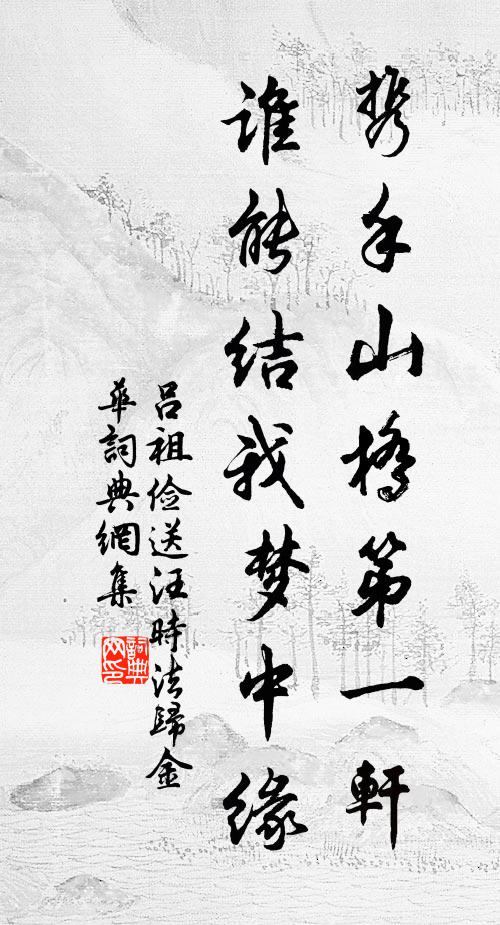 携手山桥第一軒
谁能结我梦中缘
吕祖俭送汪時法歸金
華詞典網集
詞典網印